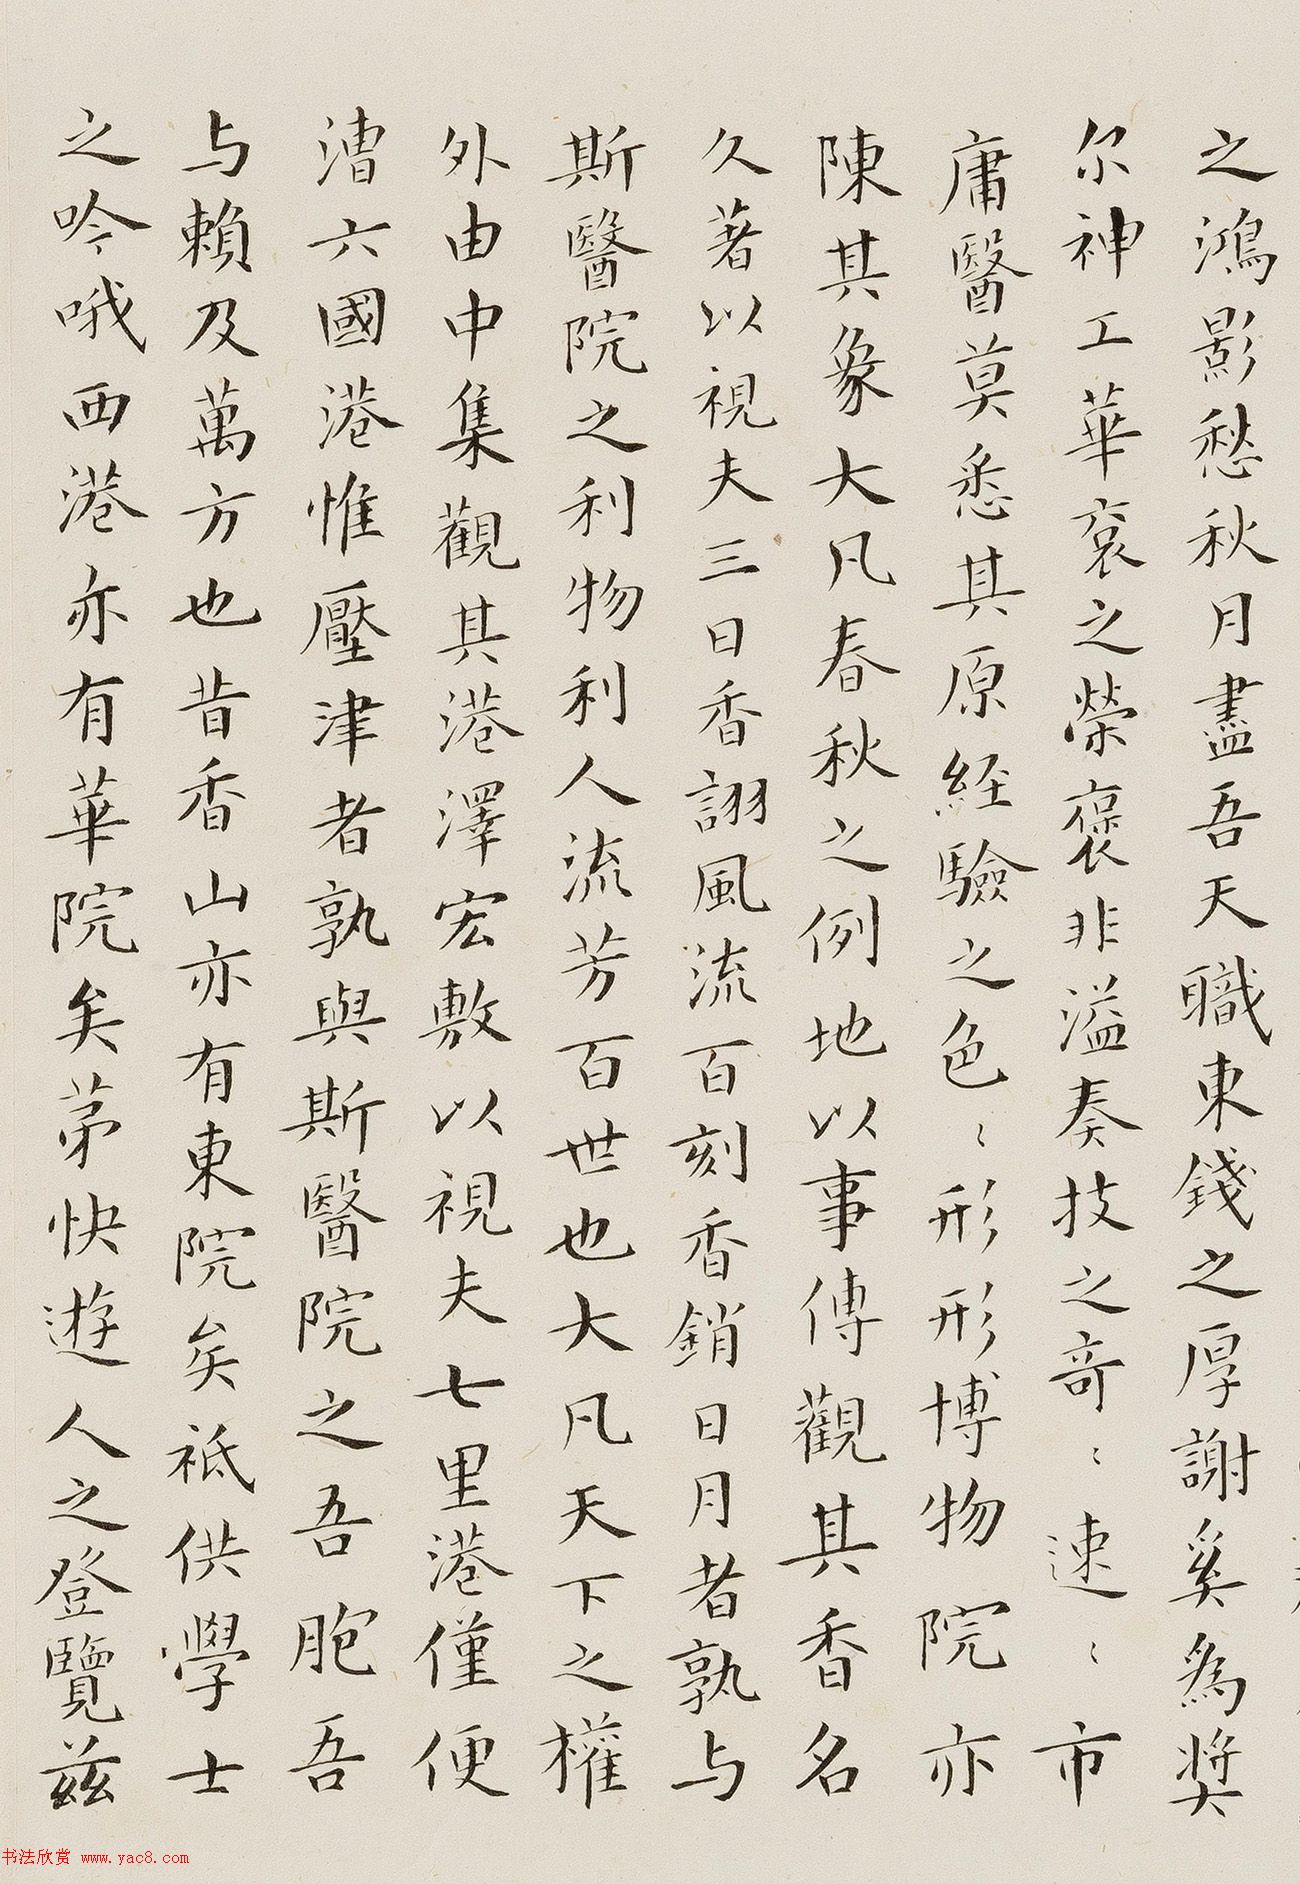 之鴻影愁秋月盡吾天職東錢之厚謝奚為奬
尔神工華袞之榮褒非溢奏技之奇〻速〻市
庸醫莫悉其原經驗之色〻形形博物院亦
陳其象大凡春秋之例地以事傳觀其香名
久著以視夫三日香詡風流百刻香銷日月者孰与
斯醫院之利物利人流芳百世也大凡天下之權
外由中集觀其港澤宏敷以視夫七里港僅便
漕六國港惟壓津者孰與斯醫院之吾胞吾
与賴及萬方也昔香山亦有東院矣祗供學士
之吟哦西港亦有華院矣苐快遊人之登覽茲
书法欣赏 www.yac8.com